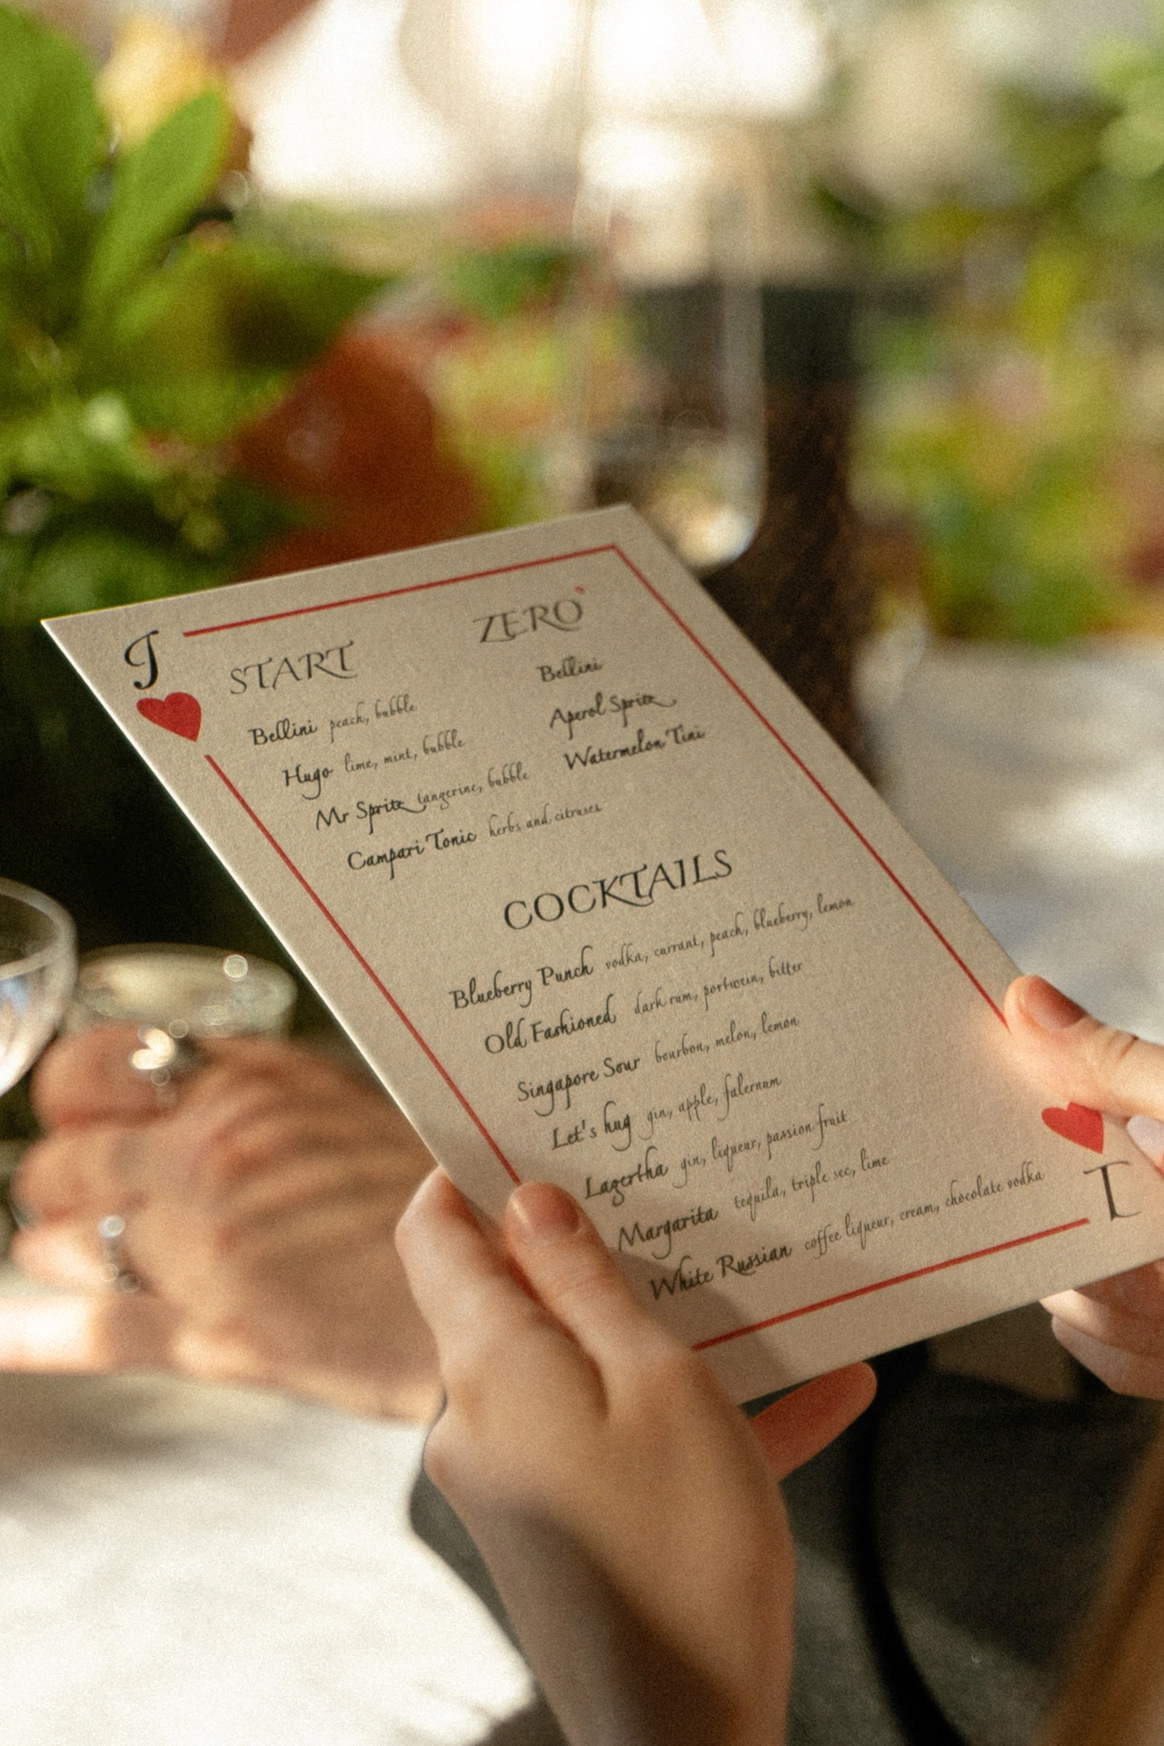 J
START
Bellini peach, bubble
Hugo lime, mint, bubble
Mr Spritz tangerine, bubble
Campari Tonic herbs and citruses
ZERO
Bellini
Aperol Spritz
Watermelon Tini
COCKTAILS
Blueberry Punch vodka, currant, peach, blueberry, lemon
Old Fashioned dark rum, portwein, bitter
Singapore Sour bourbon, melon, lemon
Let's hug gin, apple, falernum
Lagertha gin, liqueur, passion fruit
Margarita tequila, triple sec, lime
White Russian coffee liqueur, cream, chocolate vodka